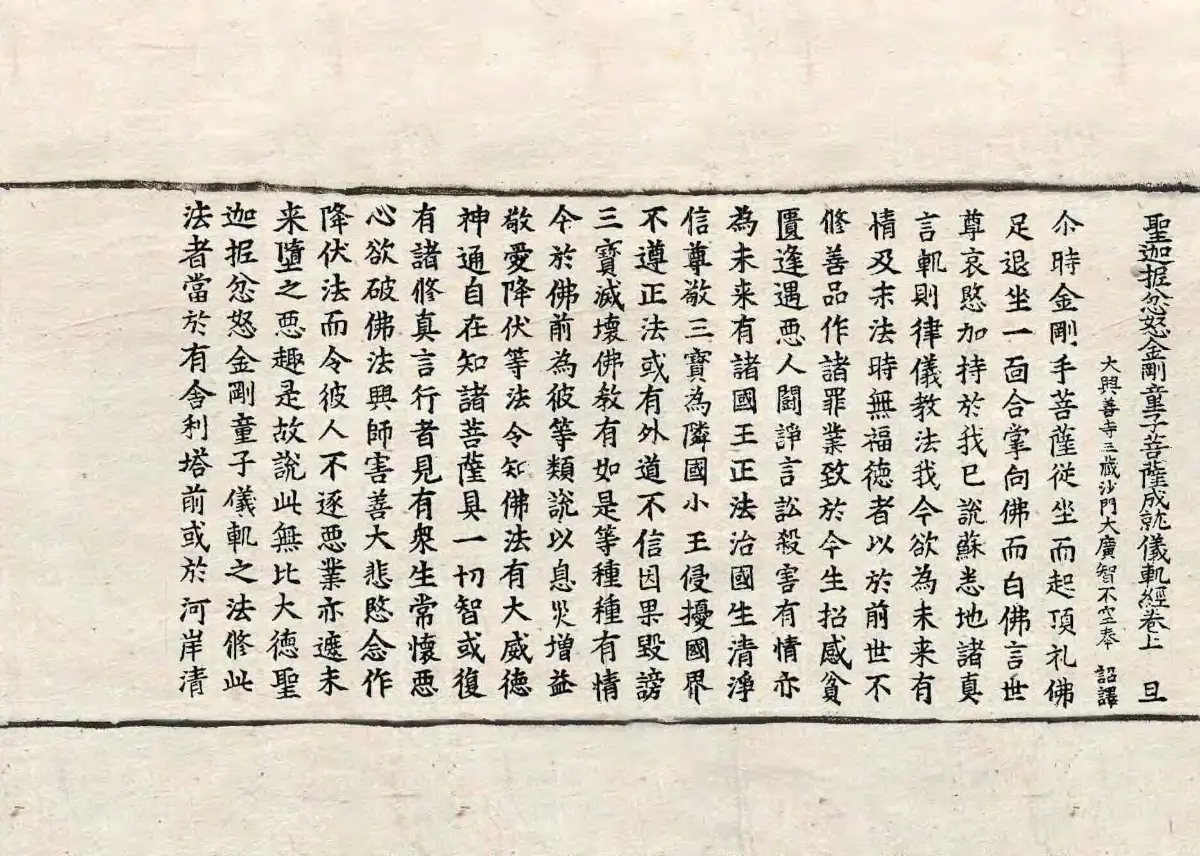 聖迦抳忿怒金剛童子菩薩成就儀軌經卷上 旦
大興善寺三藏沙門大廣智不空奉 詔譯
尒時金剛手菩薩從坐而起頂礼佛
足退坐一面合掌向佛而白佛言世
尊哀愍加持於我已說蘇悉地諸真
言軌則律儀教法我今欲為未来有
情及末法時無福德者以於前世不
修善品作諸罪業致於今生招感貧
匱逢遇惡人闘諍言訟殺害有情亦
為未来有諸國王正法治國生清淨
信尊敬三寶為隣國小王侵擾國界
不遵正法或有外道不信因果毀謗
三寶滅壞佛教有如是等種種有情
今於佛前為彼等類說以息災增益
敬愛降伏等法令知佛法有大威德
神通自在知諸菩薩具一切智或復
有諸修真言行者見有衆生常懷惡
心欲破佛法興師害善大悲愍念作
降伏法而令彼人不逐惡業亦遮未
来墮之惡趣是故說此無比大德聖
迦抳忿怒金剛童子儀軌之法修此
法者當於有舍利塔前或於河岸清